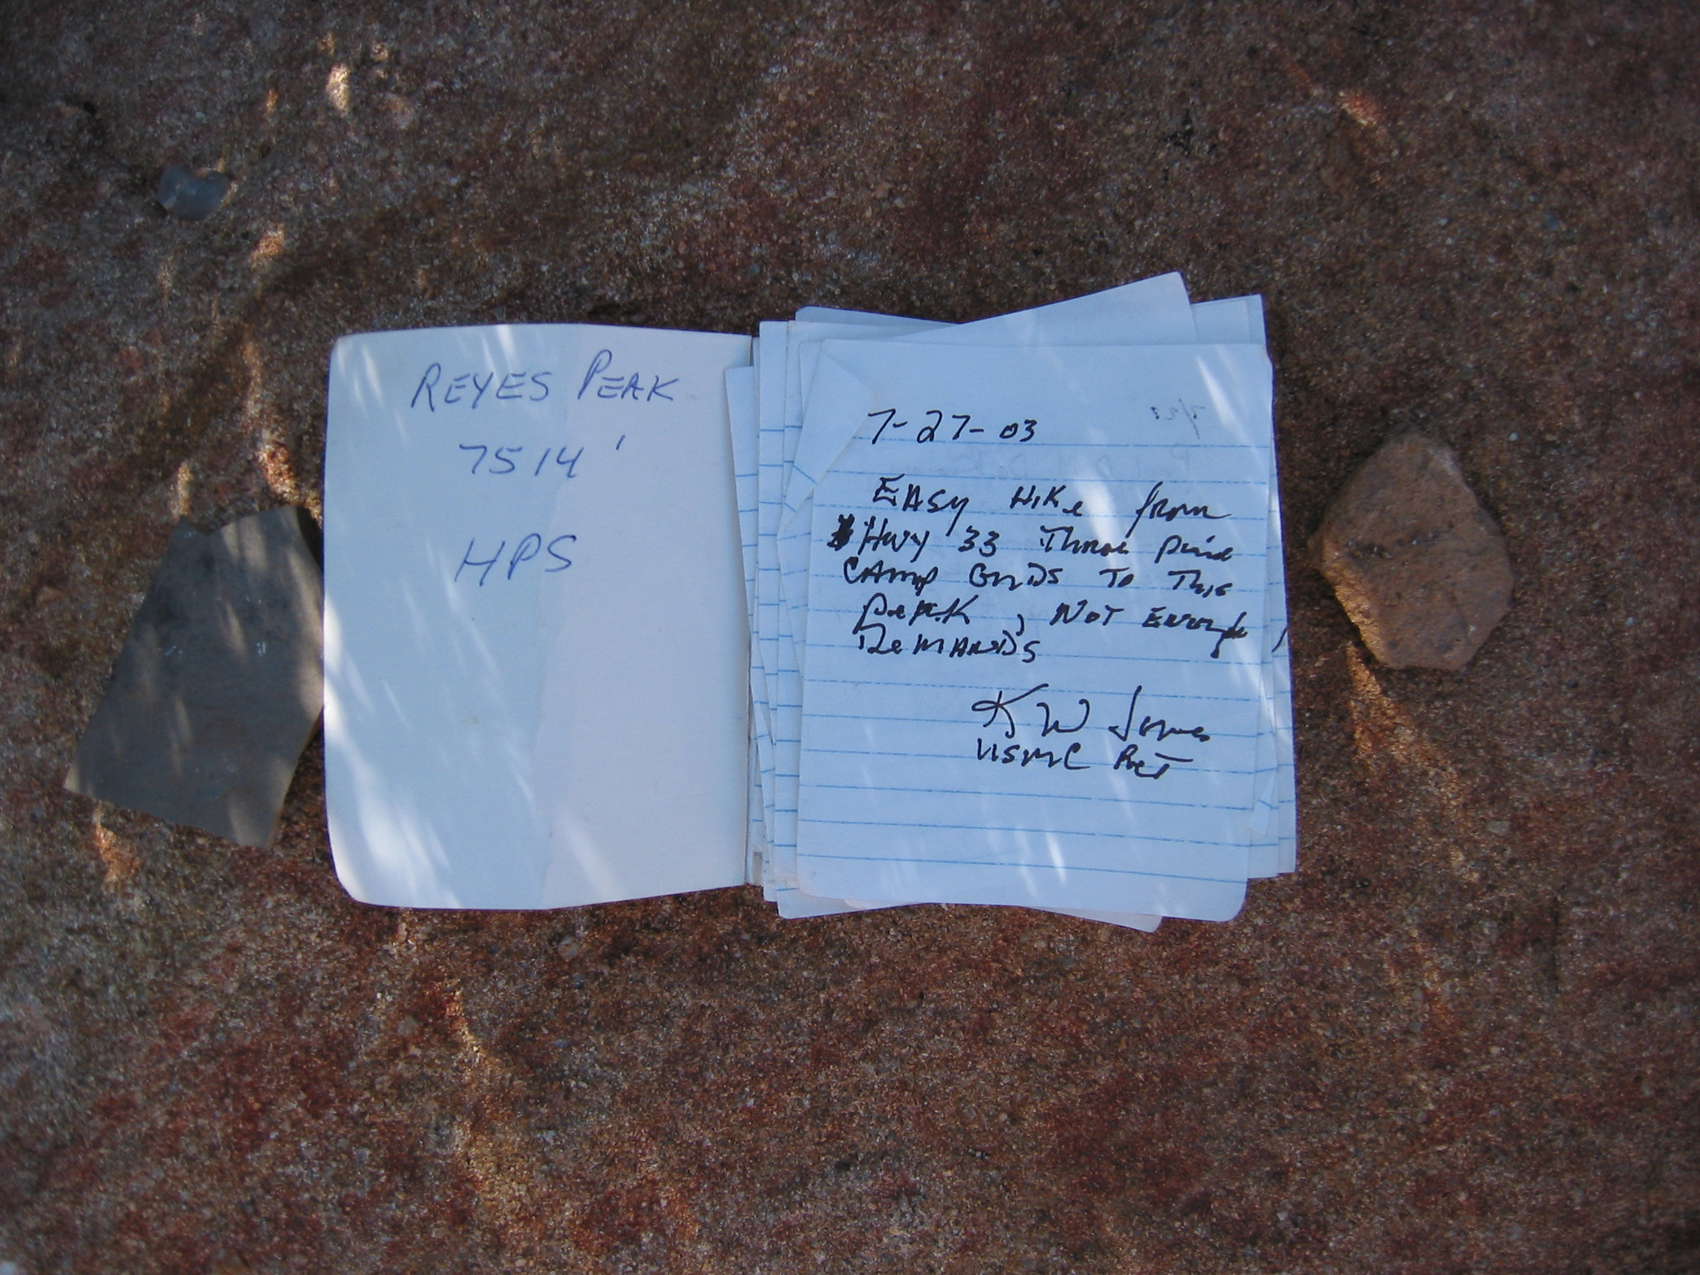 REYES PEAK
7514'
HPS
7-27-03
EASY HIKe from
Hwy 33 Three Pine
CAMP GNDS TO THis
PeAK, NOT Enough
DeMANDS
K W Jones
USMC Ret